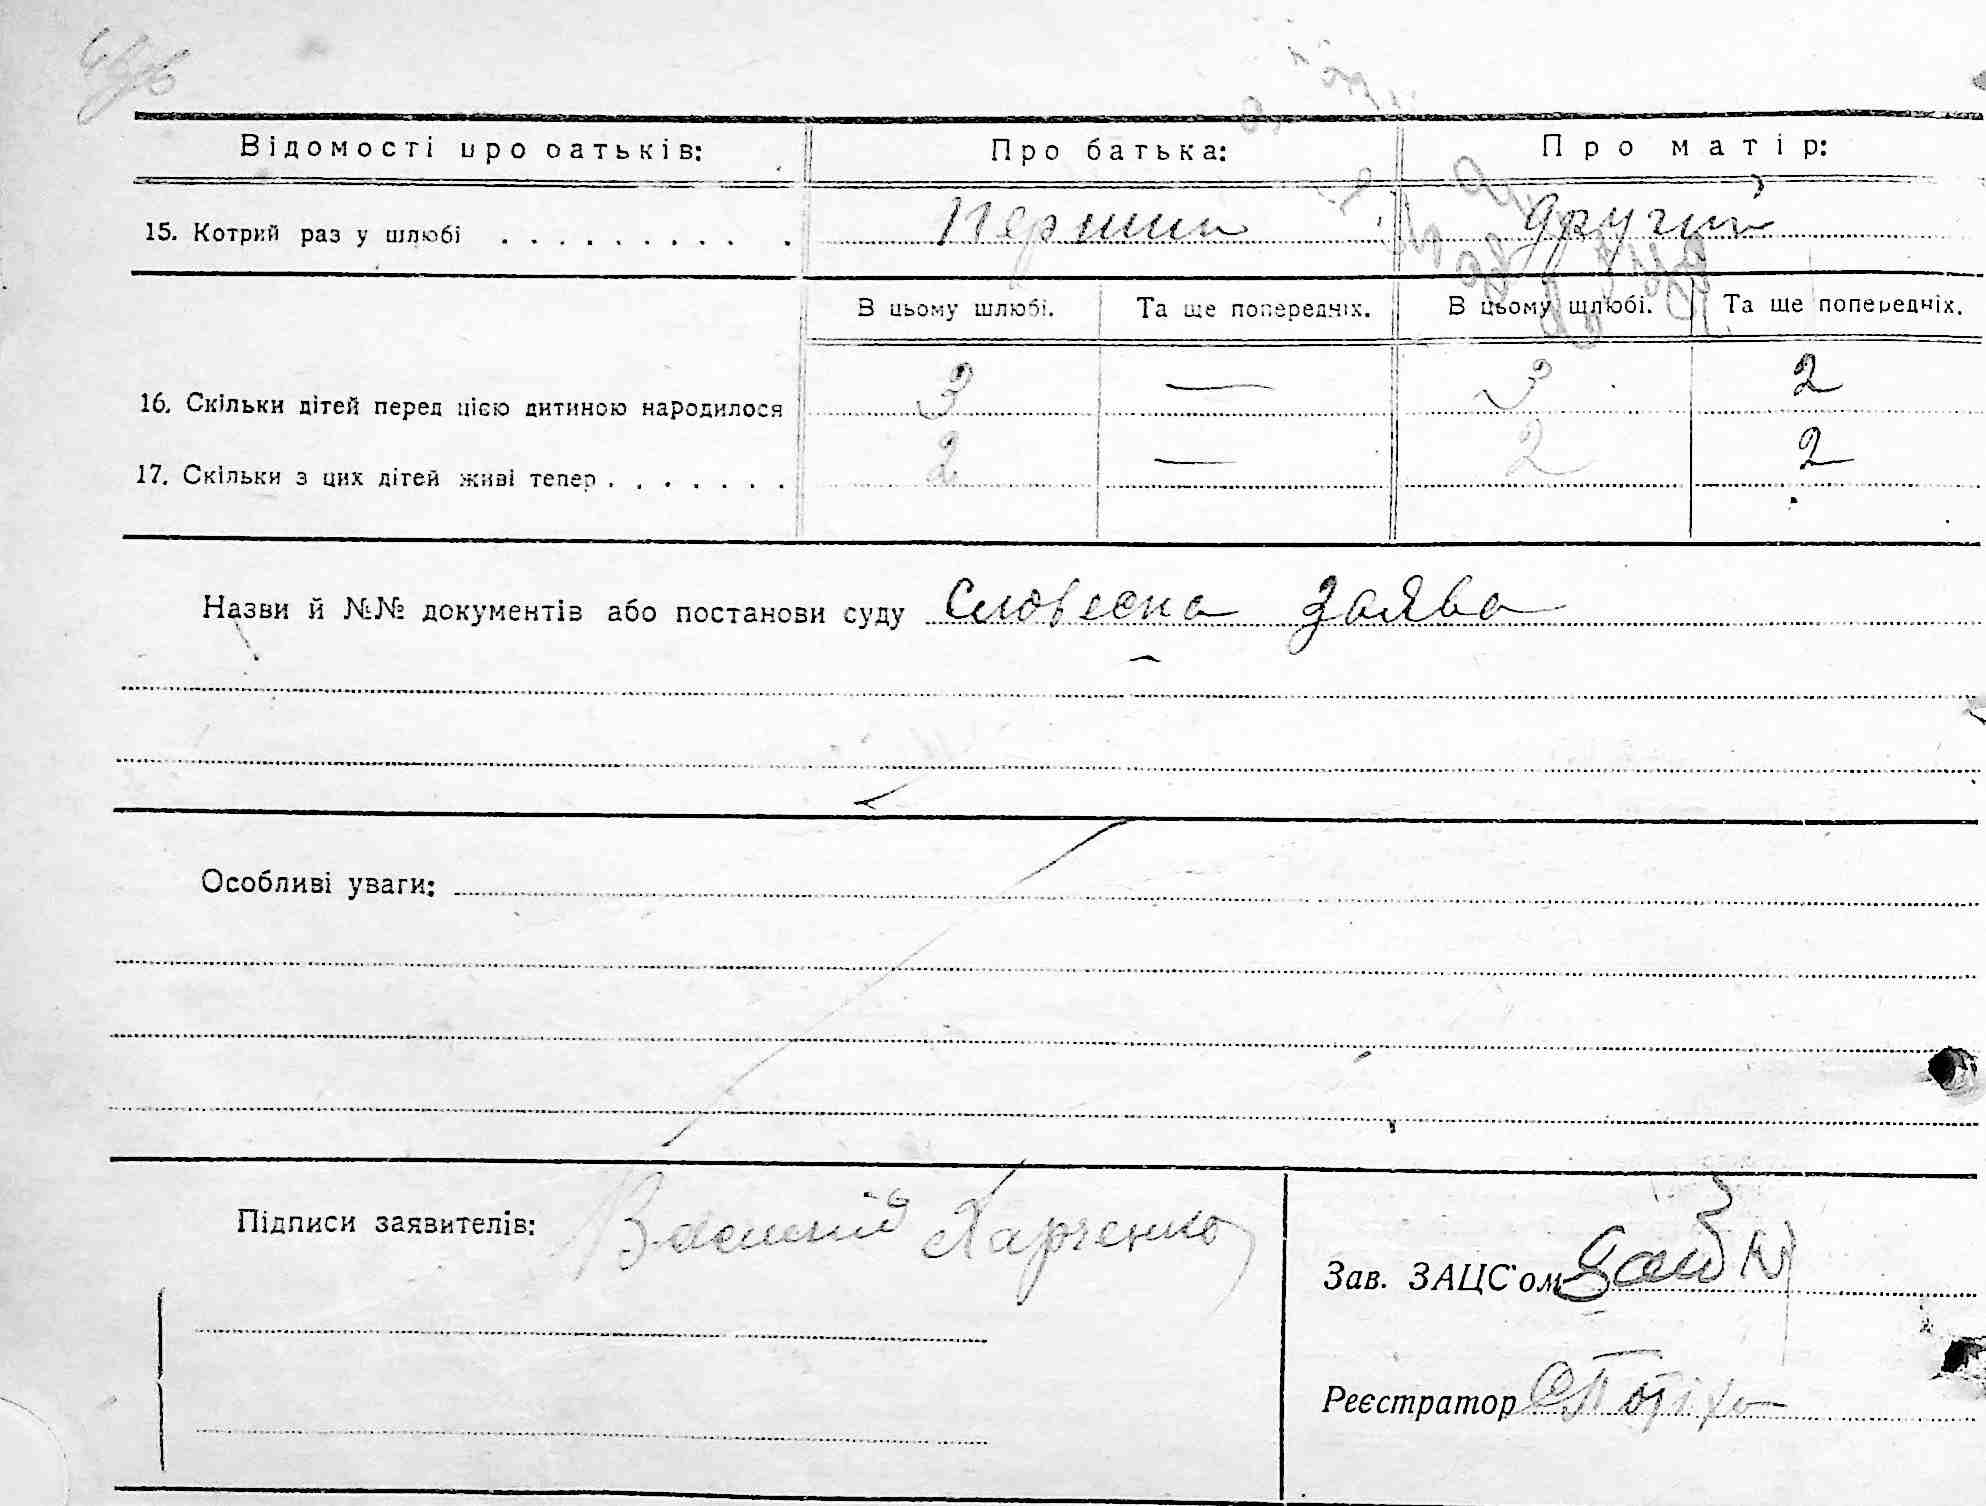 Відомості про батьків: Про батька: Про матір:
15. Котрий раз у шлюбі . . . . . . . . . . Перший другий
В цьому шлюбі. Та ще попередніх. В цьому шлюбі. Та ще попередніх.
16. Скільки дітей перед цією дитиною народилося 3 — 3 2
17. Скільки з цих дітей живі тепер . . . . . . . 2 — 2 2
Назви й №№ документів або постанови суду словесна заява
Особливі уваги:
Підписи заявителів: Василий Харченко
Зав. ЗАЦС'ом
Реєстратор